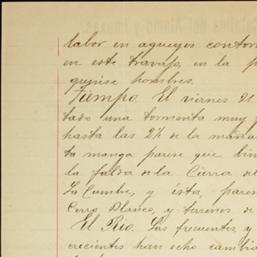 labor en aqueyos contor
en este travajo, en la p
quinse hombres.
Tiempo. El viernes 21
tado una tormenta muy f
hasta las 2½ de la maña
ta manga parese que bin
la falda de la Cierra de
La Cumbre, y ésta, paren
Cerro Blanco, y terrenos de
El Rio. Las frecuentes y
crecientes han echo cambia